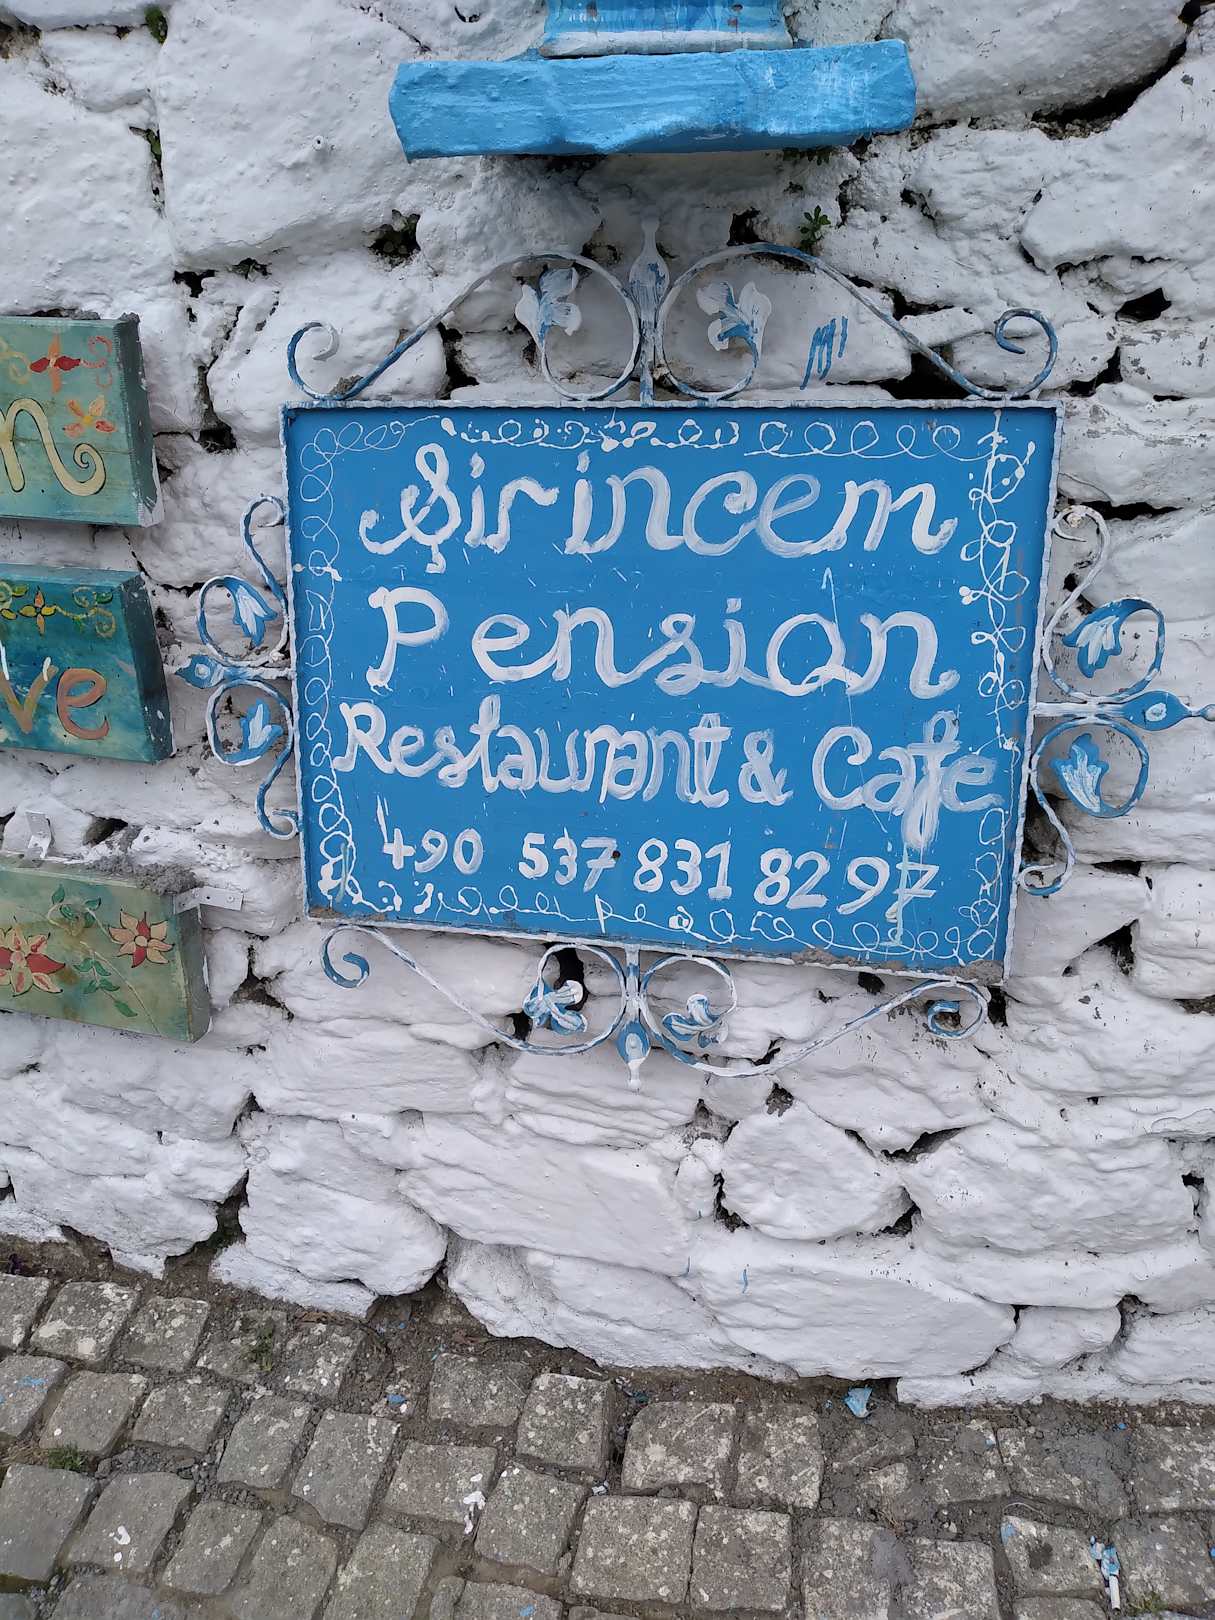 Şirincem
Pension
Restaurant & Cafe
+90 537 831 82 97